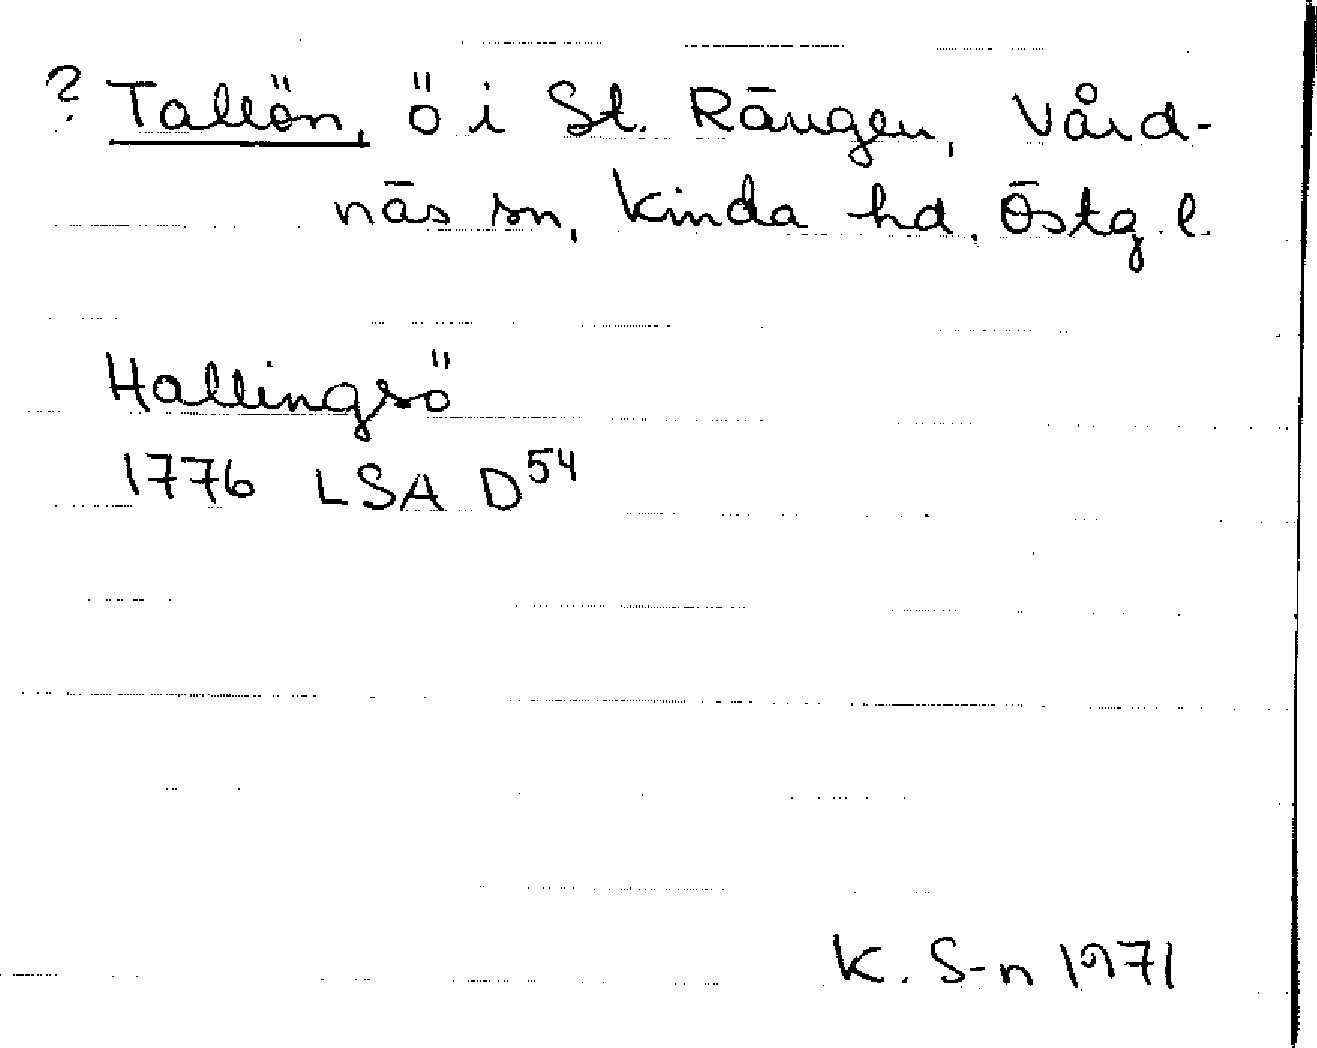 ? Tallön, ö i St. Rängen, Vård-
näs sn, Kinda hd. Östg. l.
Hallingsö
1776 LSA D54
K. S-n 1971